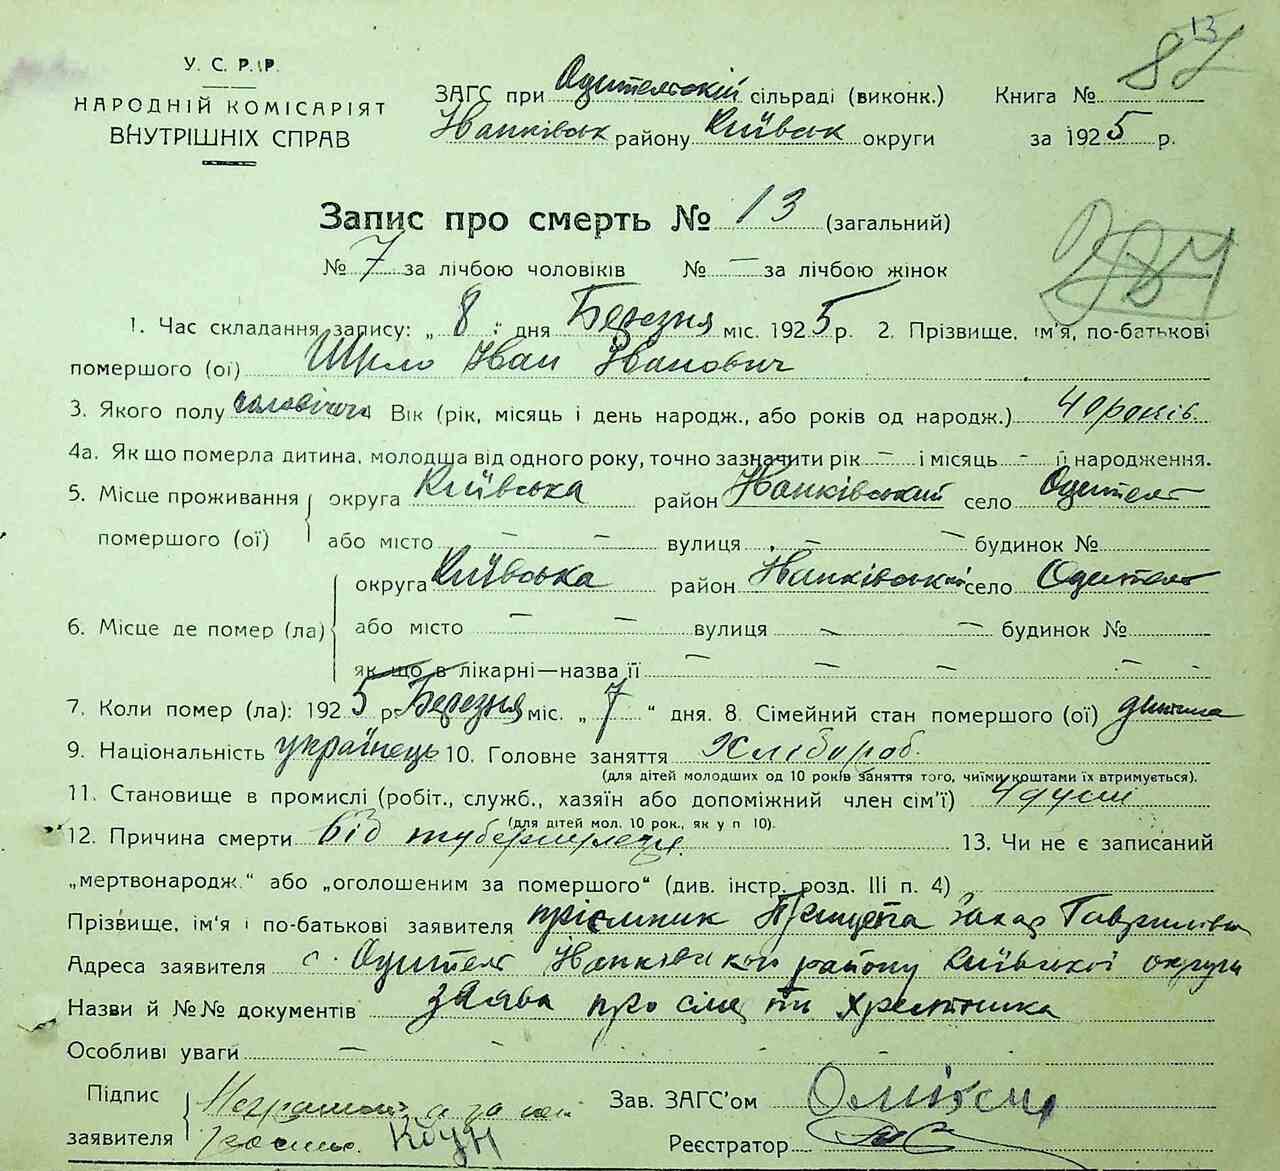 13
87
У. С. Р. Р.
НАРОДНІЙ КОМІСАРІЯТ
ВНУТРІШНІХ СПРАВ
ЗАГС при Одительській сільраді (виконк.)
Іванківськ району Київськ округи
Книга №
за 1925 р.
Запис про смерть № 13 (загальний)
№ 7 за лічбою чоловіків № — за лічбою жінок
284
1. Час складання запису: „ 8 " дня Березня міс. 1925 р. 2. Прізвище, ім'я, по-батькові
помершого (ої) Шило Іван Іванович
3. Якого полу чоловічої Вік (рік, місяць і день народж., або років од народж.) 40 років.
4а. Як що померла дитина, молодша від одного року, точно зазначити рік — і місяць — її народження.
5. Місце проживання округа Київська район Іванківський село Одителт
помершого (ої) або місто — — вулиця — — будинок №
округа Київська район Іванківський село Одителт
6. Місце де помер (ла) або місто — — вулиця — — будинок №
як що в лікарні—назва її — — — —
7. Коли помер (ла): 1925 р. Березня міс. „ 7 " дня. 8. Сімейний стан помершого (ої)
9. Національність українець 10. Головне заняття Хлібороб.
(для дітей молодших од 10 років заняття того, чиїми коштами їх втримується).
11. Становище в промислі (робіт., служб., хазяїн або допоміжний член сім'ї) 4 душі
(для дітей мол. 10 рок., як у п 10).
12. Причина смерти Від туберкульоза. 13. Чи не є записаний
„мертвонародж." або „оголошеним за помершого" (див. інстр. розд. III п. 4)
Прізвище, ім'я і по-батькові заявителя Захар Гаврилівич
Адреса заявителя с. Одителт Іванківського району Київської округи
Назви й №№ документів заява про смерть
Особливі уваги —
Підпис
заявителя
Неграмотн а за нього
Зав. ЗАГС'ом
Реєстратор